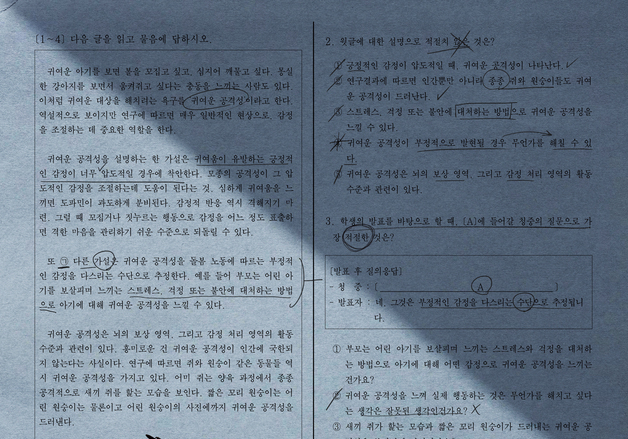 [1~4] 다음 글을 읽고 물음에 답하시오.
귀여운 아기를 보면 볼을 꼬집고 싶고, 심지어 깨물고 싶다. 몽실
한 강아지를 보면서 움켜쥐고 싶다는 충동을 느끼는 사람도 있다.
이처럼 귀여운 대상을 해치려는 욕구를 귀여운 공격성이라고 한다.
역설적으로 보이지만 연구에 따르면 매우 일반적인 현상으로, 감정
을 조절하는 데 중요한 역할을 한다.
귀여운 공격성을 설명하는 한 가설은 귀여움이 유발하는 긍정적
인 감정이 너무 압도적일 경우에 착안한다. 모종의 공격성이 그 압
도적인 감정을 조절하는데 도움이 된다는 것. 심하게 귀여움을 느
끼면 도파민이 과도하게 분비된다. 감정적 반응 역시 격해지기 마
련. 그럴 때 꼬집거나 짓누르는 행동으로 감정을 어느 정도 표출하
면 격한 마음을 관리하기 쉬운 수준으로 되돌릴 수 있다.
또 ㉠ 다른 가설은 귀여운 공격성을 돌봄 노동에 따르는 부정적
인 감정을 다스리는 수단으로 추정한다. 예를 들어 부모는 어린 아
기를 보살피며 느끼는 스트레스, 걱정 또는 불안에 대처하는 방법
으로 아기에 대해 귀여운 공격성을 느낄 수 있다.
귀여운 공격성은 뇌의 보상 영역, 그리고 감정 처리 영역의 활동
수준과 관련이 있다. 흥미로운 건 귀여운 공격성이 인간에 국한되
지 않는다는 사실이다. 연구에 따르면 쥐와 원숭이 같은 동물들 역
시 귀여운 공격성을 가지고 있다. 어미 쥐는 양육 과정에서 종종
공격적으로 새끼 쥐를 핥는 모습을 보인다. 짧은 꼬리 원숭이는 어
린 원숭이는 물론이고 어린 원숭이의 사진에까지 귀여운 공격성을
드러낸다.
2. 윗글에 대한 설명으로 적절치 않은 것은?
① 긍정적인 감정이 압도적일 때, 귀여운 공격성이 나타난다.
② 연구결과에 따르면 인간뿐만 아니라 종종 쥐와 원숭이들도 귀여
운 공격성이 드러난다.
③ 스트레스, 걱정 또는 불안에 대처하는 방법으로 귀여운 공격성을
느낄 수 있다.
④ 귀여운 공격성이 부정적으로 발현될 경우 무언가를 해칠 수 있
다.
⑤ 귀여운 공격성은 뇌의 보상 영역, 그리고 감정 처리 영역의 활동
수준과 관련이 있다.
3. 학생의 발표를 바탕으로 할 때, [A]에 들어갈 청중의 질문으로 가
장 적절한 것은?
[발표 후 질의응답]
- 청 중 : ( A )
- 발표자 : 네, 그것은 부정적인 감정을 다스리는 수단으로 추정됩니
다.
① 부모는 어린 아기를 보살피며 느끼는 스트레스와 걱정을 대처하
는 방법으로 아기에 대해 어떤 감정으로 귀여운 공격성을 느끼는
건가요?
② 귀여운 공격성을 느껴 실제 행동하는 것은 무언가를 해치고 싶다
는 생각은 잘못된 생각인건가요?
③ 새끼 쥐가 핥는 모습과 짧은 꼬리 원숭이가 드러내는 귀여운 공